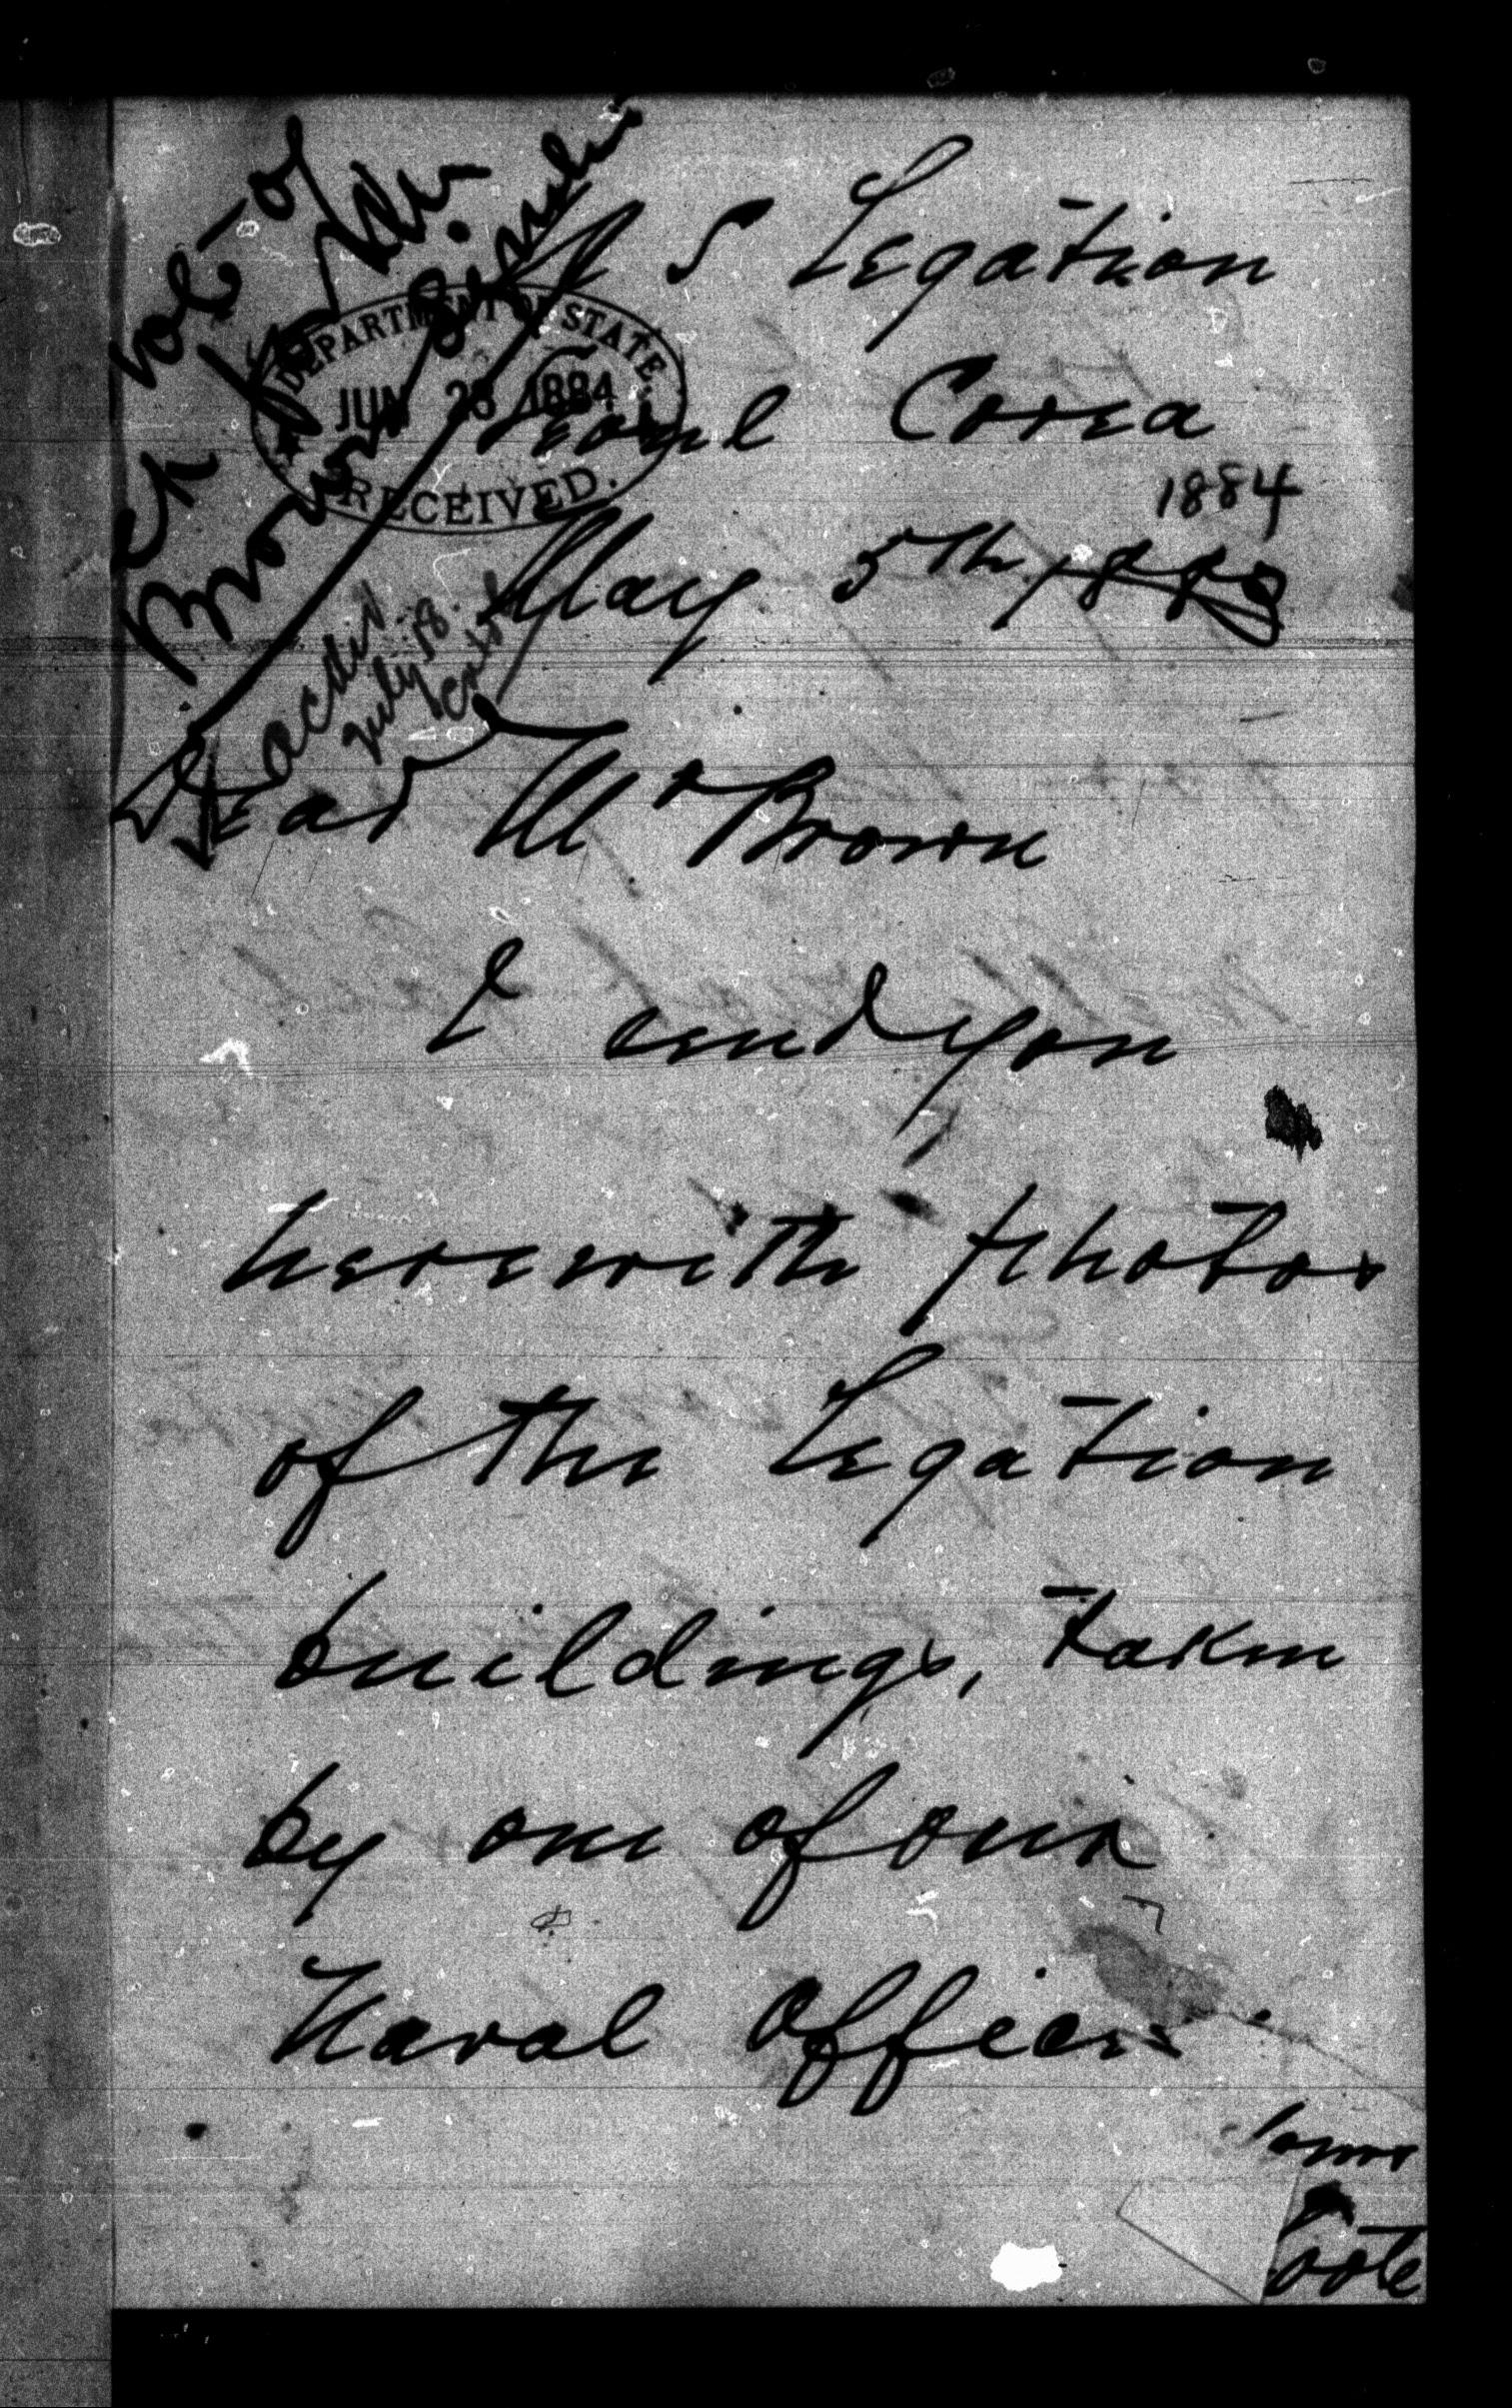 U S Legation
DEPARTMENT OF STATE.
JUN 28 1884
RECEIVED.
Seoul Corea
1884
May 5th, 1883
ackd
July 18.
Dear Mr Brown
I send you
herewith photos
of the Legation
buildings, taken
by one of our
Naval Officers.
Yours
Foote